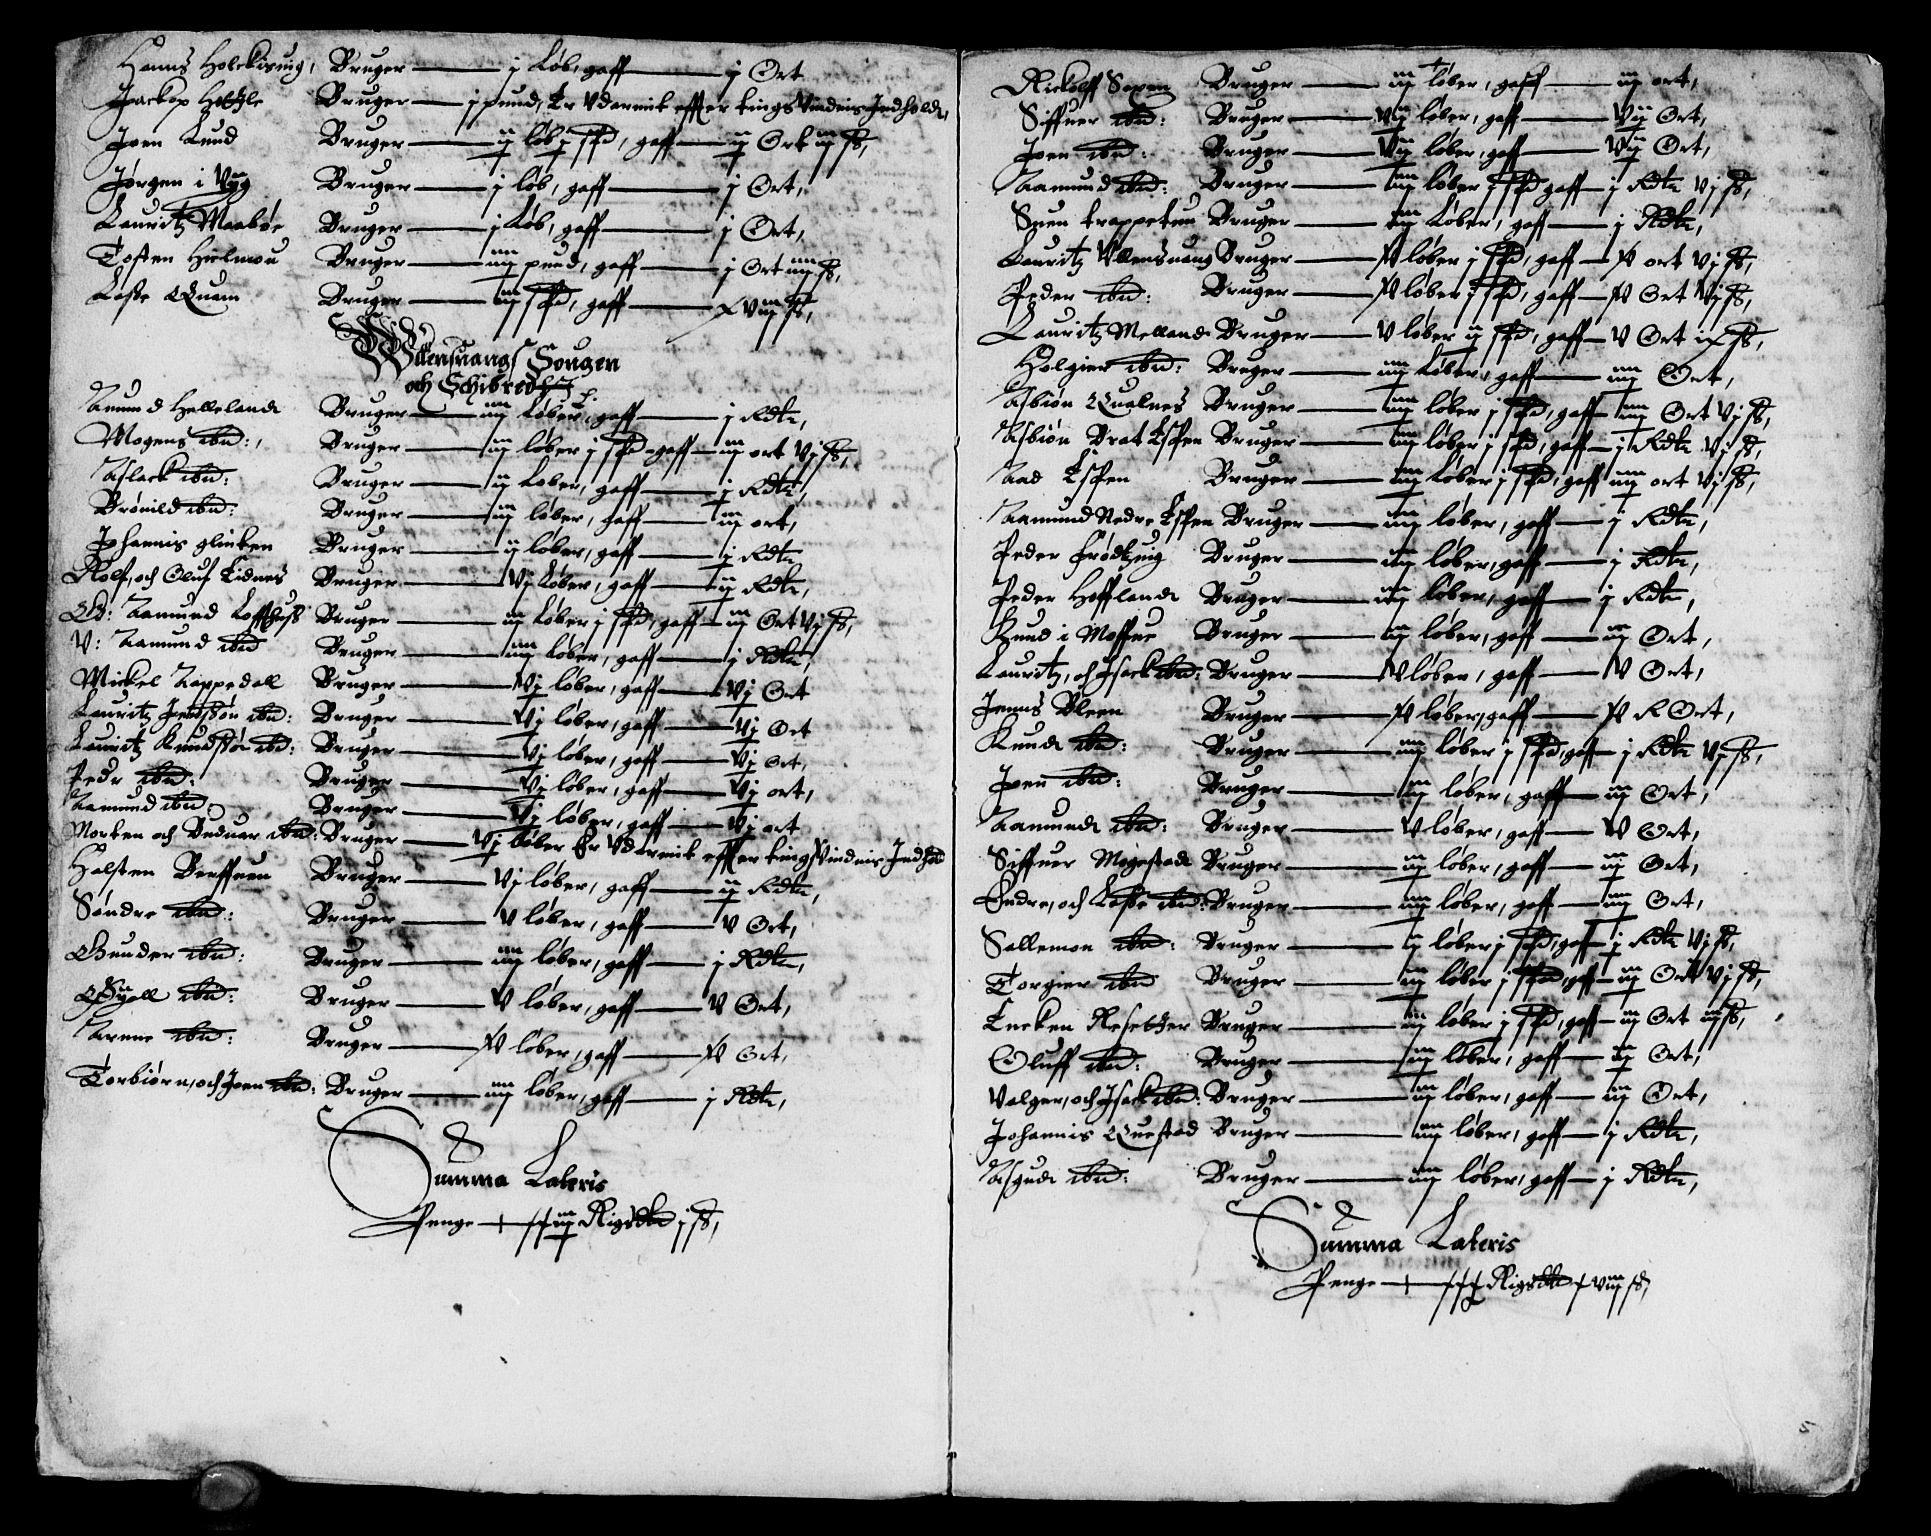 Hanns Holckisuig, Bruger — j Løb, gaff — j Ort
Jackop Hotle Bruger — j pund, Er Vdarmit effter tings Vindnis Jndhold,
Jven Lund Bruger — ij løb j spd, gaff — ij Ort iiij ß,
Jørgen i Vyg Bruger — j løb, gaff — j Ort,
Lauritz Maabøe Bruger — j Løb, gaff — j Ort,
Tosten Hielmou Bruger — iiij pund, gaff — j Ort iiij ß,
Laße Quam Bruger — iiij spd, gaff — xviij ß,
Vllensuangs Sougen
och Schibredh
Amund Hellelandt Bruger — iiij Løber, gaff — j Rdr,
Mogens ibid:, Bruger — iij løber j spd gaff — iij ort vj ß,
Aslack ibid: Bruger — iiij Løber, gaff — j Rdr,
Brønild ibid: Bruger — iij løber, gaff — iij ort,
Johannis glinken Bruger — ij løber, gaff — j Rdr
Rolf, och Oluf Eidnes Bruger — vj Løber, gaff — ij Rdr,
Ø: Aamund Loffthuß Bruger — iij Løber j spd, gaff — iij Ort vj ß,
V: Aamund ibid Bruger — iiij Løber, gaff — j Rdr,
Mickel Aappedall Bruger — vj løber, gaff — vj Ort
Lauritz Jenßøn ibid: Bruger — vj løber, gaff — vj Ort
Lauritz Knudßøn ibid: Bruger — vj løber, gaff — vj Ort,
Pedr ibid: Bruger — vj løber, gaff — vj ort,
Aamund ibid: Bruger — vj løber, gaff — vj ort
Morten och Veduar ibid: Bruger — vj løber Er Vdarmit effter tings Vindnis Jndhold
Halsten Berffuen Bruger — vj løber, gaff — ij Rdr,
Søndre ibid: Bruger — v løber, gaff — v Ort,
Gunder ibid: Bruger — iiij løber, gaff — j Rdr,
ibid: Bruger — v løber, gaff — v Ort,
Arnne ibid: Bruger — løber, gaff — Ort,
Torbiørn, och Jven ibid: Bruger — iiij løber, gaff — j Rdr,
Summa Lateris
Penge — xxiij Rigsdlr j ß,
Rickolff Sexen Bruger — iij løber, gaff — iij ort,
Siffuer ibid: Bruger — vij løber, gaff — vij Ort,
Jven ibid: Bruger — vij løber, gaff — vij Ort,
Aamund ibid: Bruger — iiij løber j spd gaff — j Rdr vj ß,
Suen trappetun Bruger — iiij Løber, gaff — j Rdr,
Lauritz Vllensuang Bruger — løber j spd, gaff — ort vj ß,
Peder ibid: Bruger — løber j spd, gaff — Ort vj ß,
Lauritz Mellandt Bruger — v løber ij spd, gaff — v Ort ix ß,
Holgier ibid: Bruger — iiij Løber, gaff — iiij Ort,
Asbiøn Qualnes Bruger — iiij løber j spd, gaff — iiij Ort vj ß,
Asbiøn Brat Espen Bruger — iiij løber j spd, gaff — j Rdr vj ß,
Aad Espen Bruger — iiij Løber j spd, gaff iiij ort vj ß,
Aamund Nedre Espen Bruger — iiij løber, gaff — j Rdr,
Peder Frødtzuig Bruger — iiij løber, gaff — j Rdr,
Peder Hofflandt Bruger — iiij løber, gaff — j Rdr,
Knud i Moffue Bruger — iij løber, gaff — iij Ort,
Lauritz, och Jsack ibid: Bruger — v løber, gaff — v Ort,
Jenns Bleen Bruger — løber, gaff — Ort,
Knudt ibid: Bruger — iiij løber j spd, gaff — j Rdr vj ß,
Jven ibid: Bruger — iij løber, gaff — iij Ort,
Aamundt ibid: Bruger — v løber, gaff — v Ort,
Siffuer Mogestadt Bruger — iij løber, gaff — iij Ort,
Endre, och Laße ibid: Bruger — iiij løber, gaff — iiij Ort,
Sallemon ibid: Bruger — ij løber j spd, gaff — j Rdr vj ß,
Torgier ibid Bruger — iij løber j spd, gaff — iij Ort vj ß,
Bruger — iij løber j spd, gaff — iij Ort iij ß,
Oluff ibid: Bruger — iij løber, gaff — iij Ort,
Valger, och Jsack ibid: Bruger — iij løber, gaff — iij Ort,
Johannis Questad Bruger — iiij løber, gaff — j Rdr,
Asgudt ibid: Bruger — iiij løber, gaff — j Rdr,
Summa Lateris
Penge — Rigsdlr xviij ß,
5